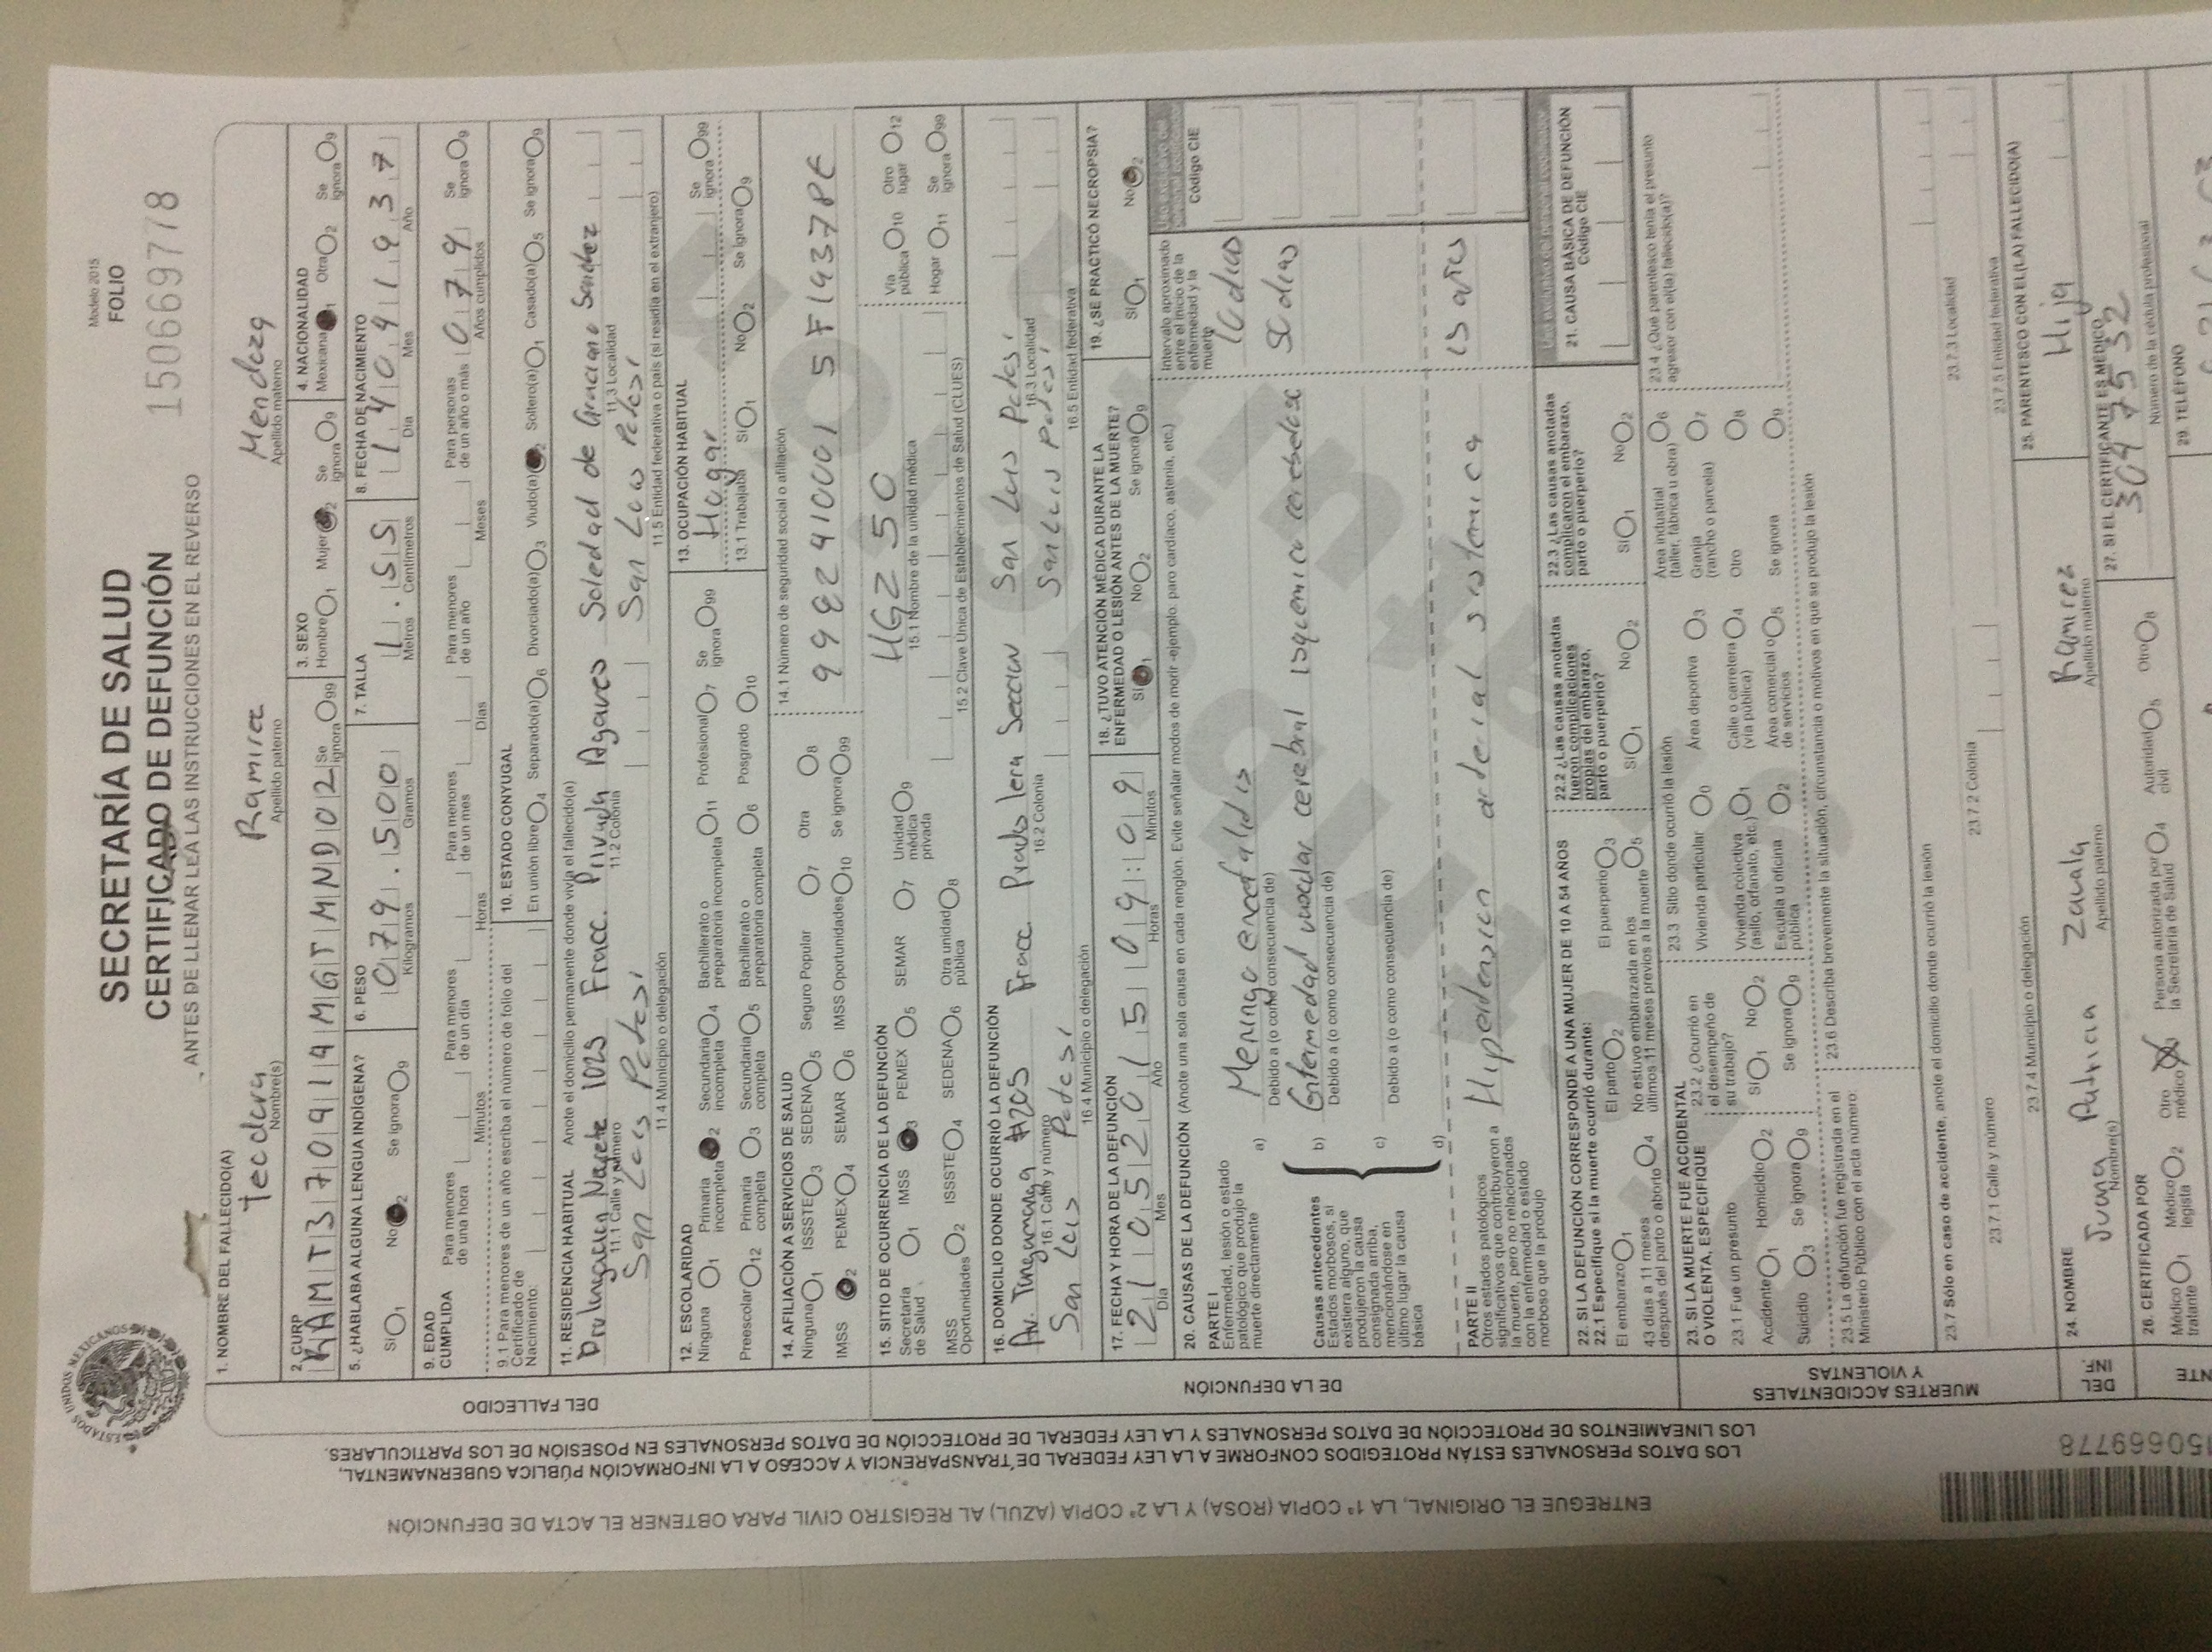 Modelo 2015
FOLIO
150669778
SECRETARÍA DE SALUD
CERTIFICADO DE DEFUNCIÓN
ANTES DE LLENAR LEA LAS INSTRUCCIONES EN EL REVERSO
ESTADOS UNIDOS MEXICANOS
1. NOMBRE DEL FALLECIDO(A)
Teodora Ramirez Mendoza
Nombre(s) Apellido paterno Apellido materno
2. CURP RAMT370919MGTMND02 Se ignora 99
3. SEXO Hombre 1 Mujer 2 Se ignora 9
4. NACIONALIDAD Mexicana 1 Otra 2 Se ignora 9
5. ¿HABLABA ALGUNA LENGUA INDÍGENA?
SÍ 1 No 2 Se ignora 9
6. PESO 079.500
Kilogramos Gramos
7. TALLA 1.55
Metros Centímetros
8. FECHA DE NACIMIENTO
Día Mes Año
9. EDAD CUMPLIDA
Para menores de una hora Minutos
Para menores de un día Horas
Para menores de un mes Días
Para menores de un año Meses
Para personas de un año o más 079 Años cumplidos
Se ignora 9
9.1 Para menores de un año escriba el número de folio del Certificado de Nacimiento:
10. ESTADO CONYUGAL
En unión libre 4 Separado(a) 6 Divorciado(a) 3 Viudo(a) 2 Soltero(a) 1 Casado(a) 5 Se ignora 9
11. RESIDENCIA HABITUAL Anote el domicilio permanente donde vivía el fallecido(a)
Prolongacion Negrete 1025 Fracc. Privada Pagaves Soledad de Graciano Sanchez
11.1 Calle y número 11.2 Colonia 11.3 Localidad
San Luis Potosi San Luis Potosi
11.4 Municipio o delegación 11.5 Entidad federativa o país (si residía en el extranjero)
12. ESCOLARIDAD
Ninguna 1 Primaria incompleta 2 Secundaria incompleta 4 Bachillerato o preparatoria incompleta 11 Profesional 7 Se ignora 99
Preescolar 12 Primaria completa 3 Secundaria completa 5 Bachillerato o preparatoria completa 6 Posgrado 10
13. OCUPACIÓN HABITUAL
Hogar Se ignora 99
13.1 Trabajaba SÍ 1 No 2 Se ignora 9
14. AFILIACIÓN A SERVICIOS DE SALUD
Ninguna 1 ISSSTE 3 SEDENA 5 Seguro Popular 7 Otra 8
IMSS 2 PEMEX 4 SEMAR 6 IMSS Oportunidades 10 Se ignora 99
14.1 Número de seguridad social o afiliación
15. SITIO DE OCURRENCIA DE LA DEFUNCIÓN
Secretaría de Salud 1 IMSS 3 PEMEX 5 SEMAR 7 Unidad médica privada 9
IMSS Oportunidades 2 ISSSTE 4 SEDENA 6 Otra unidad pública 8
HGZ 50
15.1 Nombre de la unidad médica
Vía pública 10 Otro lugar 12
Hogar 11 Se ignora 99
15.2 Clave Única de Establecimientos de Salud (CLUES)
16. DOMICILIO DONDE OCURRIÓ LA DEFUNCIÓN
Av. Tangamanga #205 Fracc Prados 1era Seccion San Luis Potosi
16.1 Calle y número 16.2 Colonia 16.3 Localidad
San Luis Potosi San Luis Potosi
16.4 Municipio o delegación 16.5 Entidad federativa
17. FECHA Y HORA DE LA DEFUNCIÓN
21 05 2015 09:09
Día Mes Año Horas Minutos
18. ¿TUVO ATENCIÓN MÉDICA DURANTE LA ENFERMEDAD O LESIÓN ANTES DE LA MUERTE?
SÍ 1 No 2 Se ignora 9
19. ¿SE PRACTICÓ NECROPSIA?
SÍ 1 No 2
20. CAUSAS DE LA DEFUNCIÓN (Anote una sola causa en cada renglón. Evite señalar modos de morir -ejemplo: paro cardiaco, astenia, etc.)
Intervalo aproximado entre el inicio de la enfermedad y la muerte
Código CIE
PARTE I
Enfermedad, lesión o estado patológico que produjo la muerte directamente
a) Meningo encefalitis 10 dias
Debido a (o como consecuencia de)
Causas antecedentes
Estados morbosos, si existiera alguno, que produjeron la causa consignada arriba, mencionándose en último lugar la causa básica
b) Enfermedad vascular cerebral isquemico cerebelosa 30 dias
Debido a (o como consecuencia de)
c)
Debido a (o como consecuencia de)
d)
PARTE II
Otros estados patológicos significativos que contribuyeron a la muerte, pero no relacionados con la enfermedad o estado morboso que la produjo
Hipertension arterial sistemica 15 años
21. CAUSA BÁSICA DE DEFUNCIÓN
Código CIE
22. SI LA DEFUNCIÓN CORRESPONDE A UNA MUJER DE 10 A 54 AÑOS
22.1 Especifique si la muerte ocurrió durante:
El embarazo 1 El parto 2 El puerperio 3
43 días a 11 meses después del parto o aborto 4
No estuvo embarazada en los últimos 11 meses previos a la muerte 5
22.2 ¿Las causas anotadas fueron complicaciones propias del embarazo, parto o puerperio?
SÍ 1 No 2
22.3 ¿Las causas anotadas complicaron el embarazo, parto o puerperio?
SÍ 1 No 2
23. SI LA MUERTE FUE ACCIDENTAL O VIOLENTA, ESPECIFIQUE
23.1 Fue un presunto
Accidente 1 Homicidio 2
Suicidio 3 Se ignora 9
23.2 ¿Ocurrió en el desempeño de su trabajo?
SÍ 1 No 2
Se ignora 9
23.3 Sitio donde ocurrió la lesión
Vivienda particular 0 Área deportiva 3 Área industrial (taller, fábrica u obra) 6
Vivienda colectiva (asilo, orfanato, etc.) 1 Calle o carretera (vía pública) 4 Granja (rancho o parcela) 7
Escuela u oficina pública 2 Área comercial o de servicios 5 Otro 8
Se ignora 9
23.4 ¿Qué parentesco tenía el presunto agresor con el(la) fallecido(a)?
23.5 La defunción fue registrada en el Ministerio Público con el acta número:
23.6 Describa brevemente la situación, circunstancia o motivos en que se produjo la lesión
23.7 Sólo en caso de accidente, anote el domicilio donde ocurrió la lesión
23.7.1 Calle y número 23.7.2 Colonia 23.7.3 Localidad
23.7.4 Municipio o delegación 23.7.5 Entidad federativa
24. NOMBRE
Juana Patricia Zavala Ramirez
Nombre(s) Apellido paterno Apellido materno
25. PARENTESCO CON EL(LA) FALLECIDO(A)
Hija
26. CERTIFICADA POR
Médico tratante 1 Médico legista 2 Otro médico Persona autorizada por la Secretaría de Salud 4 Autoridad civil 5 Otro 8
27. SI EL CERTIFICANTE ES MÉDICO
Número de la cédula profesional
29. TELÉFONO
DEL FALLECIDO
DE LA DEFUNCIÓN
MUERTES ACCIDENTALES Y VIOLENTAS
DEL INF.
LOS DATOS PERSONALES ESTÁN PROTEGIDOS CONFORME A LA LEY FEDERAL DE TRANSPARENCIA Y ACCESO A LA INFORMACIÓN PÚBLICA GUBERNAMENTAL,
LOS LINEAMIENTOS DE PROTECCIÓN DE DATOS PERSONALES Y LA LEY FEDERAL DE PROTECCIÓN DE DATOS PERSONALES EN POSESIÓN DE LOS PARTICULARES.
ENTREGUE EL ORIGINAL, LA 1ª COPIA (ROSA) Y LA 2ª COPIA (AZUL) AL REGISTRO CIVIL PARA OBTENER EL ACTA DE DEFUNCIÓN
150669778